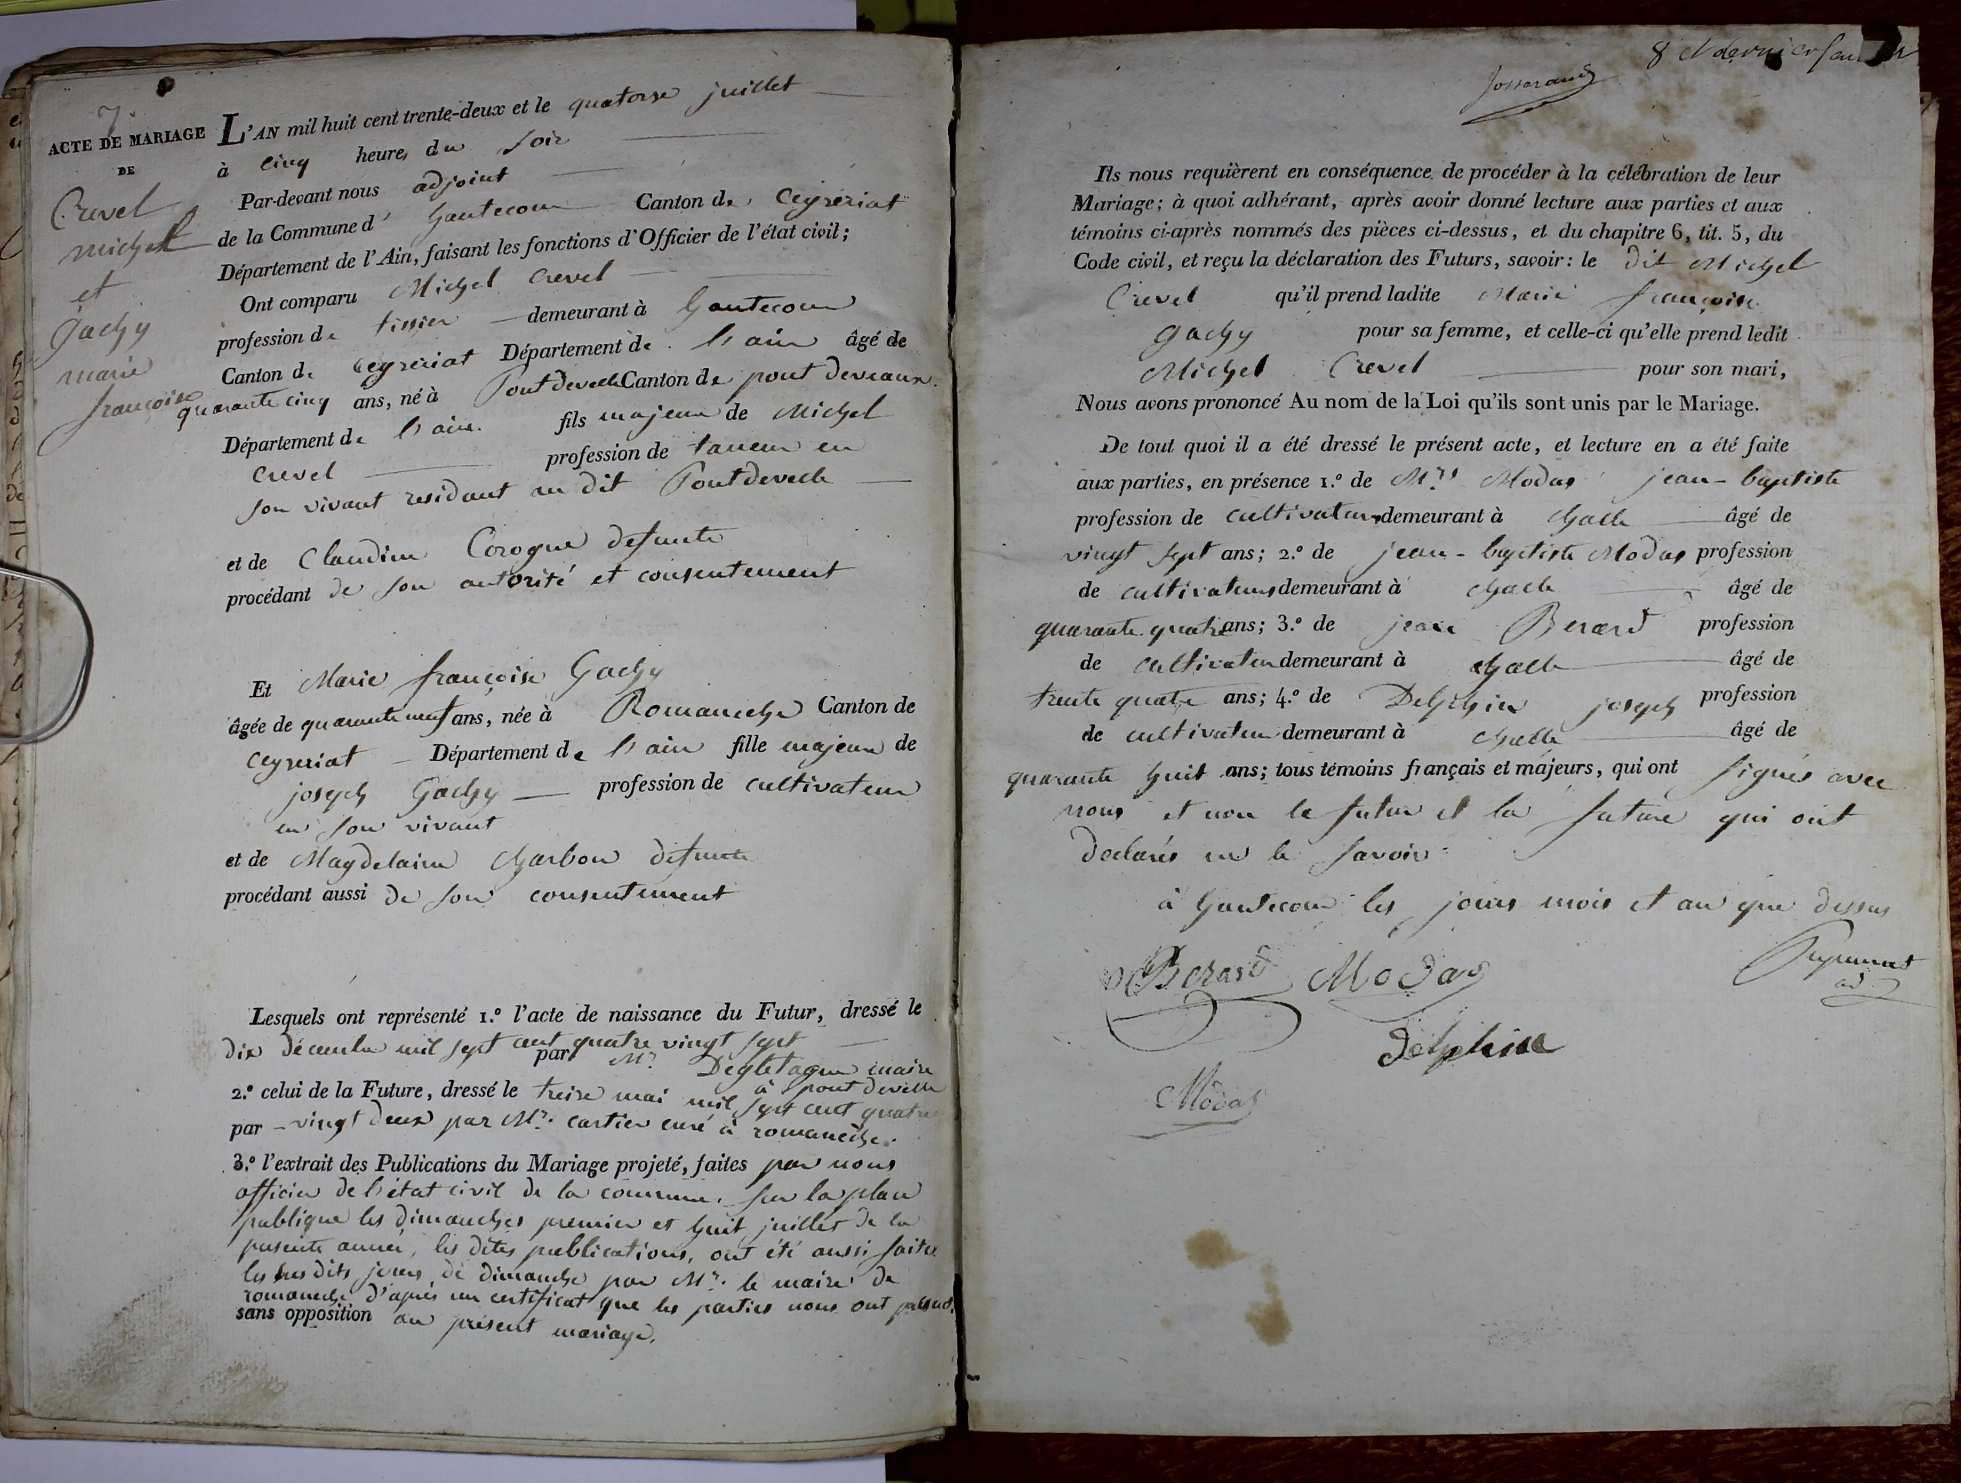 7.
ACTE DE MARIAGE
DE
Crevel
michel
et
gachy
marie
françoise
L'AN mil huit cent trente-deux et le quatorze juillet
à cinq heures du soir
Par-devant nous adjoint
de la Commune d' hautecour Canton de Ceyzeriat
Département de l'Ain, faisant les fonctions d'Officier de l'état civil;
Ont comparu Michel Crevel
profession de tissier demeurant à hautecour
Canton de Ceyzeriat Département de l'ain âgé de
quarante cinq ans, né à Pontdevelle Canton de pont devaux
Département de l'ain. fils majeur de Michel
Crevel profession de taneur en
son vivant residant au dit Pontdevelle
et de Claudine Corogne defunte
procédant de son autorité et consentement
Et Marie françoise Gachy
âgée de quarante neuf ans, née à Romaneche Canton de
Ceyzeriat Département de l'ain fille majeure de
joseph Gachy profession de cultivateur
en son vivant
et de Magdelaine Charbon defunte
procédant aussi de son consentement
Lesquels ont représenté 1.º l'acte de naissance du Futur, dressé le
dix décembre mil sept cent quatre vingt sept
par Mr. maire
à pont develle
2.º celui de la Future, dressé le treize mai mil sept cent quatre
par - vingt deux par Mr. cartier curé à romaneche.
3.º l'extrait des Publications du Mariage projeté, faites par nous
officier de l'état civil de la commune. sur la place
publique les dimanches premier et huit juillet de la
presente année, les dites publications, ont été aussi faites
les susdits jours de dimanche par Mr. le maire de
romaneche d'apres un certificat que les parties nous ont
sans opposition au présent mariage.
8 et dernier
Josserand
Ils nous requièrent en conséquence de procéder à la célébration de leur
Mariage; à quoi adhérant, après avoir donné lecture aux parties et aux
témoins ci-après nommés des pièces ci-dessus, et du chapitre 6, tit. 5, du
Code civil, et reçu la déclaration des Futurs, savoir: le dit Michel
Crevel qu'il prend ladite Marie françoise
gachy pour sa femme, et celle-ci qu'elle prend ledit
Michel Crevel pour son mari,
Nous avons prononcé Au nom de la Loi qu'ils sont unis par le Mariage.
De tout quoi il a été dressé le présent acte, et lecture en a été faite
aux parties, en présence 1.º de Mrs Modas jean-baptiste
profession de cultivateur demeurant à challe âgé de
vingt sept ans; 2.º de jean-baptiste Modas profession
de cultivateur demeurant à challe âgé de
quarante quatre ans; 3.º de jean Berard profession
de cultivateur demeurant à challe âgé de
trente quatre ans; 4.º de Delphin joseph profession
de cultivateur demeurant à challe âgé de
quarante huit ans; tous témoins français et majeurs, qui ont signés avec
nous et non le futur et la future qui ont
declarés ne le savoir
à hautecour les jours mois et an que dessus
Berard Modas
Delphin
Modas